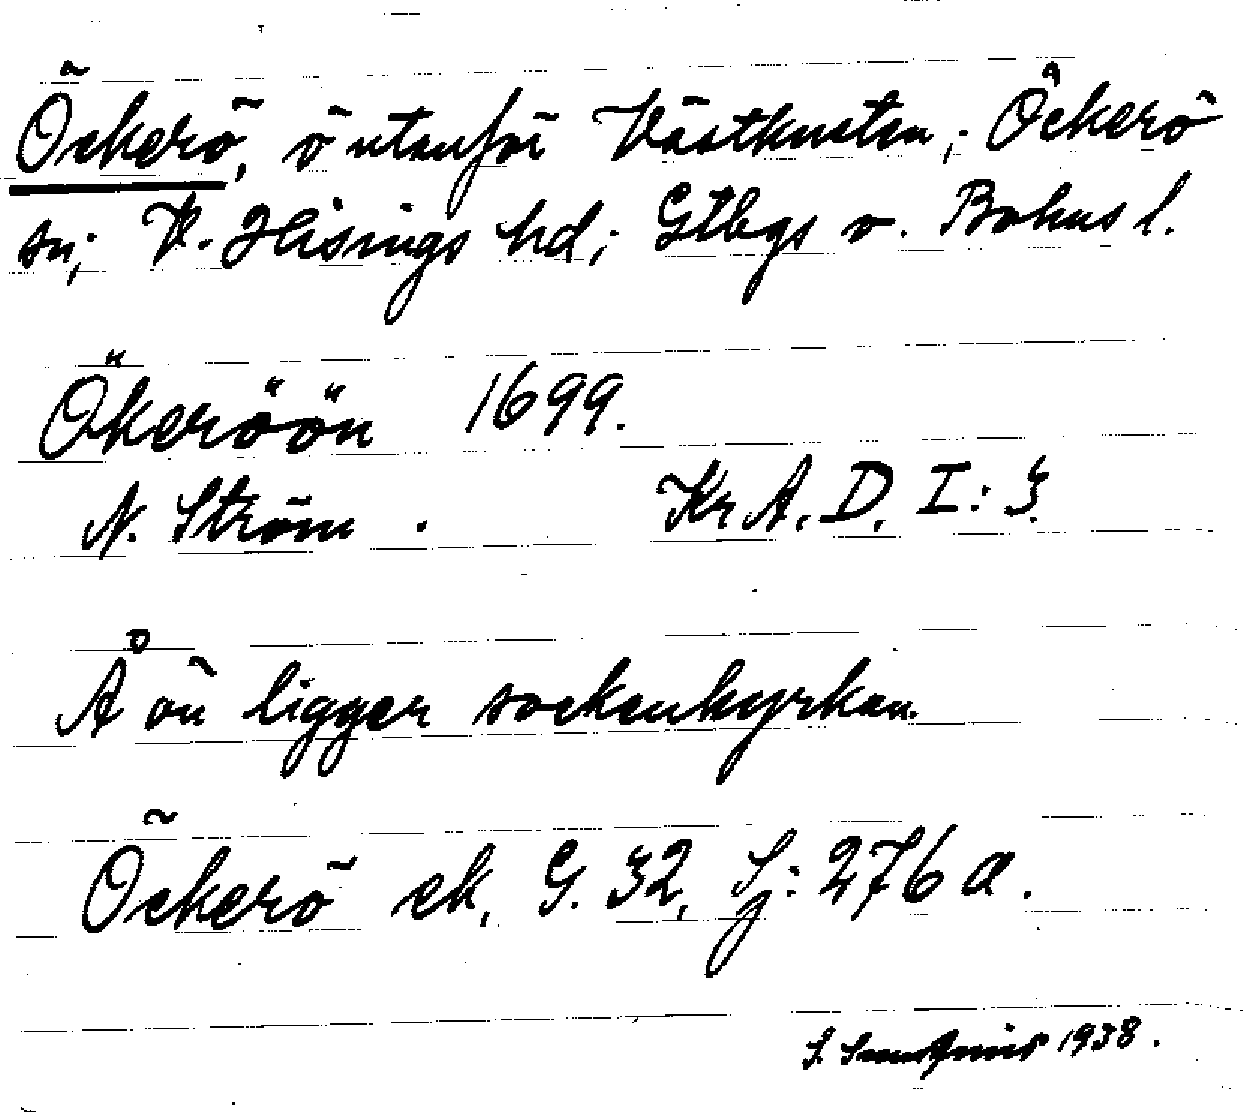 Öckerö, ö utanför Västkusten; Öckerö
sn; V. Hisings hd; Gtbgs o. Bohus l.
Ökeröön 1699.
N. Ström. Kr A. D. I: 3.
Å ön ligger sockenkyrkan.
Öckerö ek. G. 32, Sj: 276 a.
S. 1938.